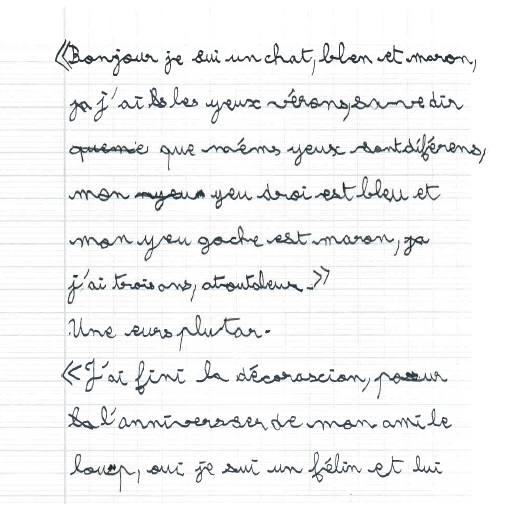 «Bonjour je sui un chat, bleu et maron,
j'ai les yeux vérons, sa ve dir
que mèms yeux sont diférens,
mon yeu droi est bleu et
mon yeu goche est maron,
j'ai trois ans, a toutaleur.»
Une eurs plutar.
«J'ai fini la décorascion, pour
l'anniversser de mon ami le
loup, oui je sui un félin et lui